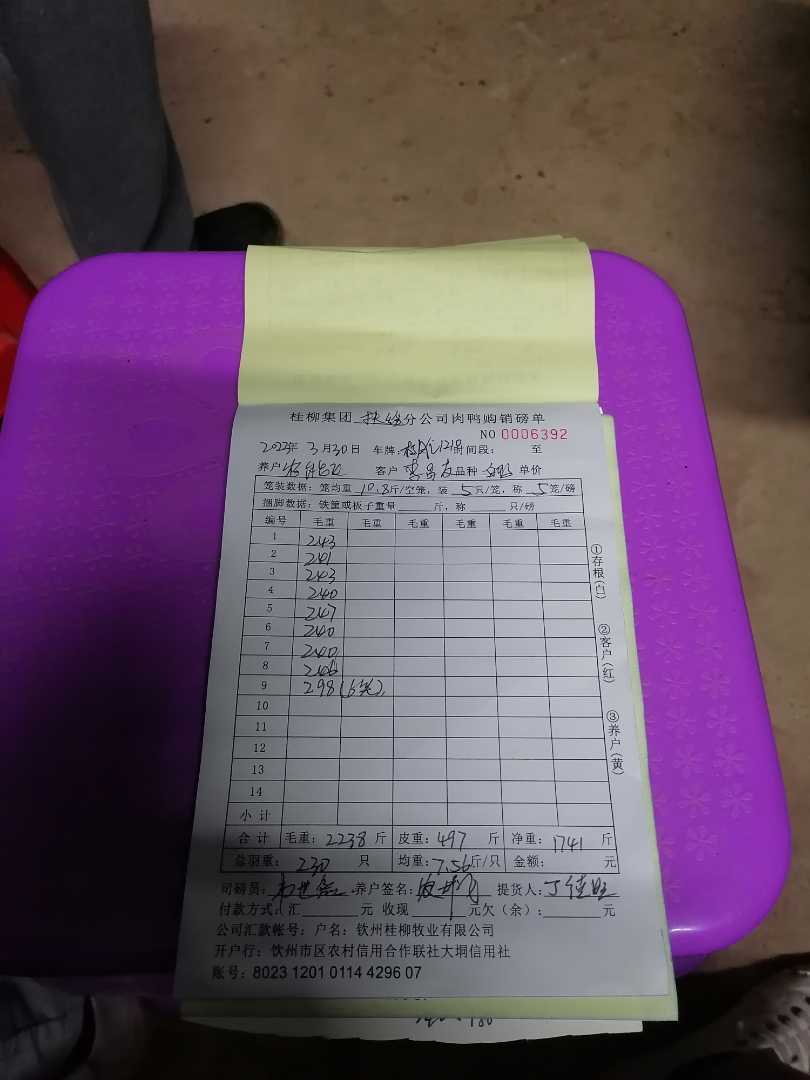 桂柳集团 扶绥 分公司肉鸭购销磅单
NO 0006392
2022年 3月30日 车牌: 时间段: 至
养户 客户 品种 单价
笼装数据: 笼均重 10.8斤/空笼, 装 5只/笼, 称 5笼/磅
捆脚数据: 铁筐或板子重量 斤, 称 只/磅
编号 毛重 毛重 毛重 毛重 毛重 毛重
1 243
2 241
3 243
4 240
5 247
6 240
7 240
8 246
9 298(6笼)
10
11
12
13
14
小计
合计 毛重: 2238 斤 皮重: 497 斤 净重: 1741 斤
总羽重: 230 只 均重: 7.56斤/只 金额: 元
司磅员: 养户签名: 提货人: 丁佳旺
付款方式: 汇 元 收现 元欠(余): 元
公司汇款帐号: 户名: 钦州桂柳牧业有限公司
开户行: 钦州市区农村信用合作联社大垌信用社
账号: 8023 1201 0114 4296 07
①存根(白)
②客户(红)
③养户(黄)